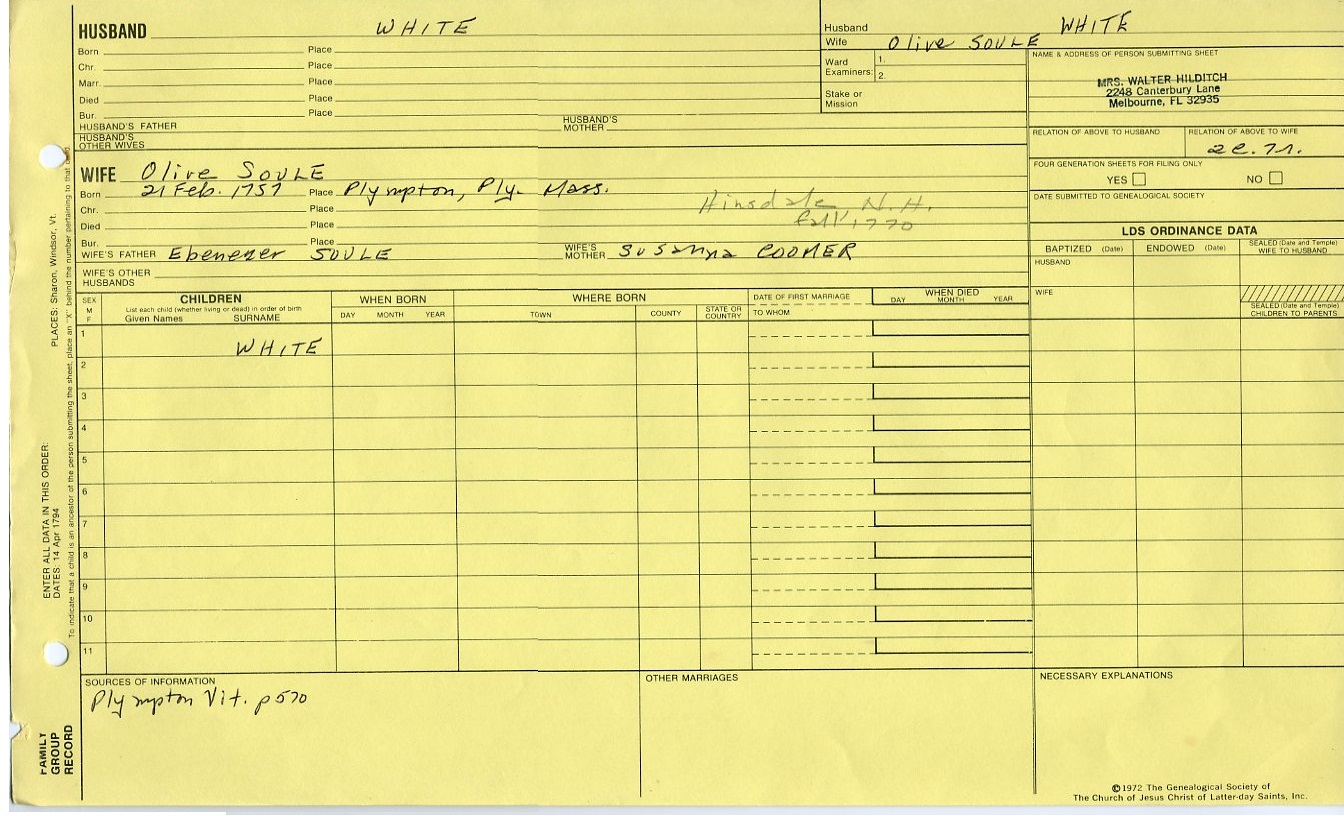 HUSBAND WHITE
Born Place
Chr. Place
Marr. Place
Died Place
Bur. Place
HUSBAND'S FATHER HUSBAND'S MOTHER
HUSBAND'S OTHER WIVES
WIFE Olive SOULE
Born 21 Feb. 1757 Place Plympton, Ply. Mass.
Chr. Place
Died Place
Hinsdale N.H.
fall 1770
Bur. Place
WIFE'S FATHER Ebenezer SOULE WIFE'S MOTHER Susanna COOMER
WIFE'S OTHER HUSBANDS
Husband WHITE
Wife Olive SOULE
Ward Examiners: 1.
2.
Stake or Mission
NAME & ADDRESS OF PERSON SUBMITTING SHEET
MRS. WALTER HILDITCH
2248 Canterbury Lane
Melbourne, FL 32935
RELATION OF ABOVE TO HUSBAND RELATION OF ABOVE TO WIFE
FOUR GENERATION SHEETS FOR FILING ONLY
YES NO
DATE SUBMITTED TO GENEALOGICAL SOCIETY
LDS ORDINANCE DATA
BAPTIZED (Date) ENDOWED (Date) SEALED (Date and Temple) WIFE TO HUSBAND
HUSBAND
WIFE
SEALED (Date and Temple) CHILDREN TO PARENTS
SEX M F
CHILDREN
List each child (whether living or dead) in order of birth
Given Names SURNAME
WHEN BORN
DAY MONTH YEAR
WHERE BORN
TOWN COUNTY STATE OR COUNTRY
DATE OF FIRST MARRIAGE
TO WHOM
WHEN DIED
DAY MONTH YEAR
1
WHITE
2
3
4
5
6
7
8
9
10
11
SOURCES OF INFORMATION
Plympton Vit. p570
OTHER MARRIAGES
NECESSARY EXPLANATIONS
©1972 The Genealogical Society of
The Church of Jesus Christ of Latter-day Saints, Inc.
FAMILY GROUP RECORD
ENTER ALL DATA IN THIS ORDER:
DATES: 14 Apr 1794
PLACES: Sharon, Windsor, Vt.
To indicate that a child is an ancestor of the person submitting the sheet, place an "X" behind the number pertaining to that